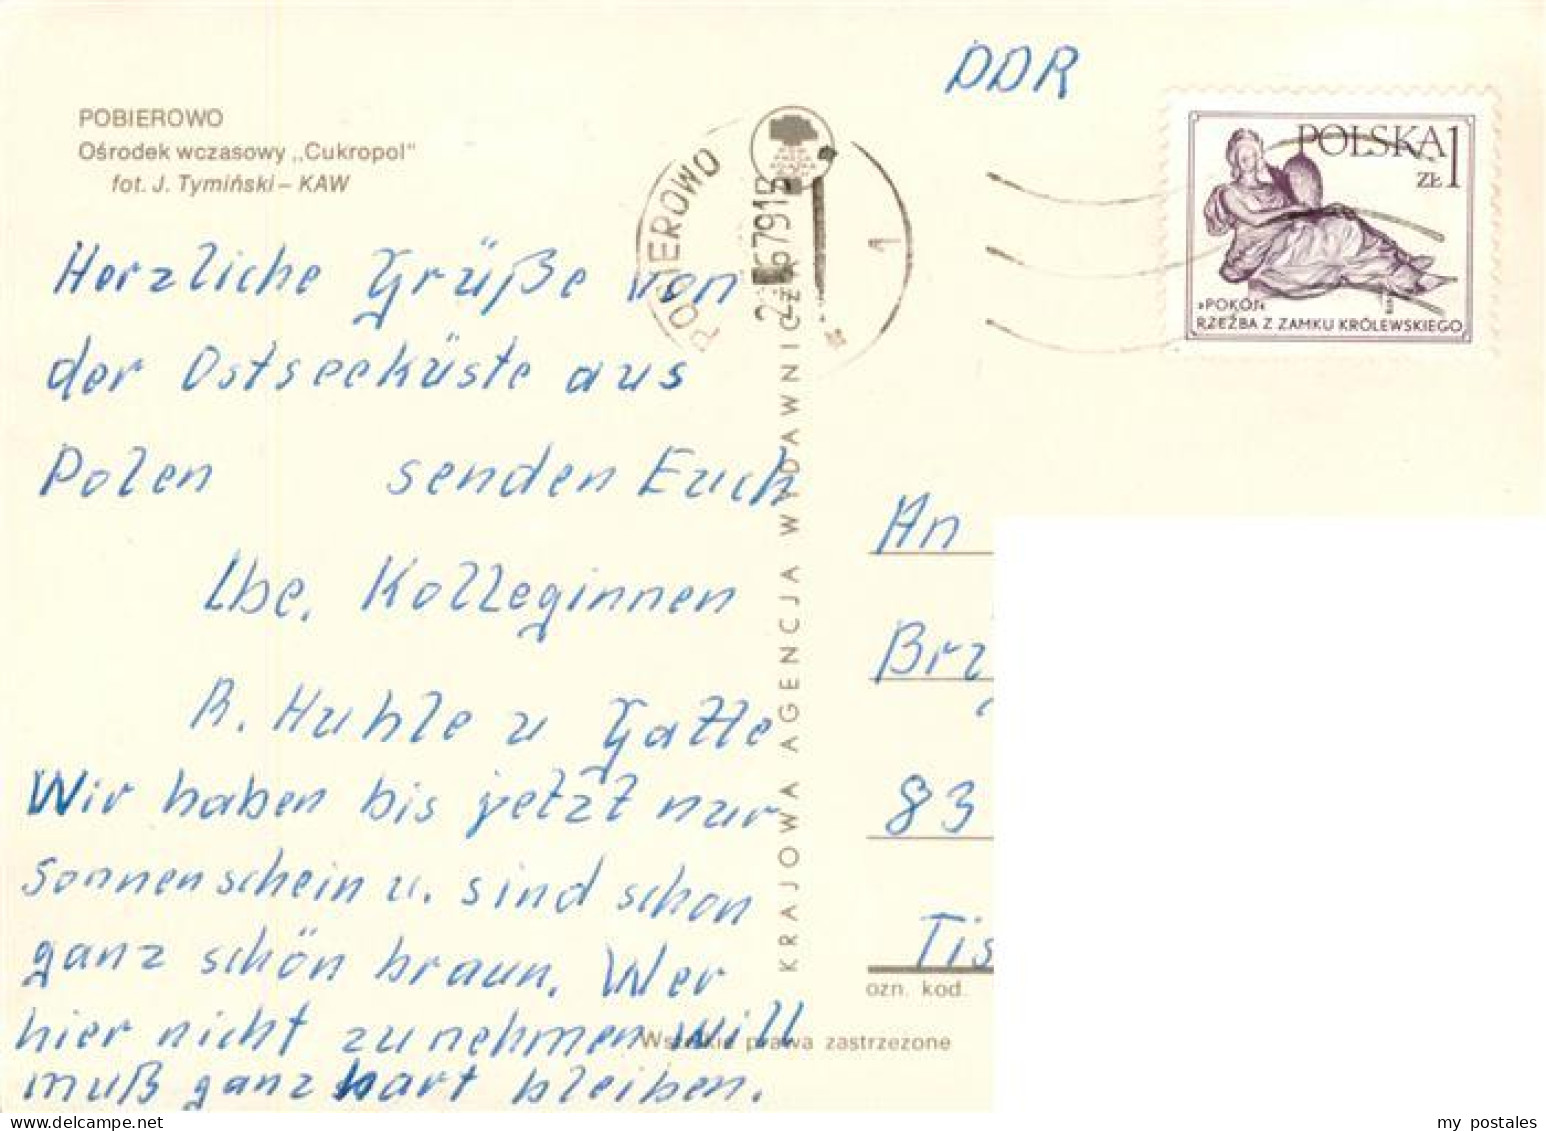 POBIEROWO
Ośrodek wczasowy „Cukropol"
fot. J. Tymiński – KAW
Herzliche Grüße von
der Ostseeküste aus
Polen senden Euch
Lbe. Kolleginnen
R. Huhle u Gatte
Wir haben bis jetzt nur
Sonnenschein u. sind schon
ganz schön braun. Wer
hier nicht zunehmen will
muß ganz hart bleiben.
KRAJOWA AGENCJA WYDAWNICZA
POBIEROWO
1
DDR
POLSKA 1
ZŁ
»POKÓJ«
RZEŹBA Z ZAMKU KRÓLEWSKIEGO
An
83
ozn. kod.
Wszelkie prawa zastrzeżone
my postales